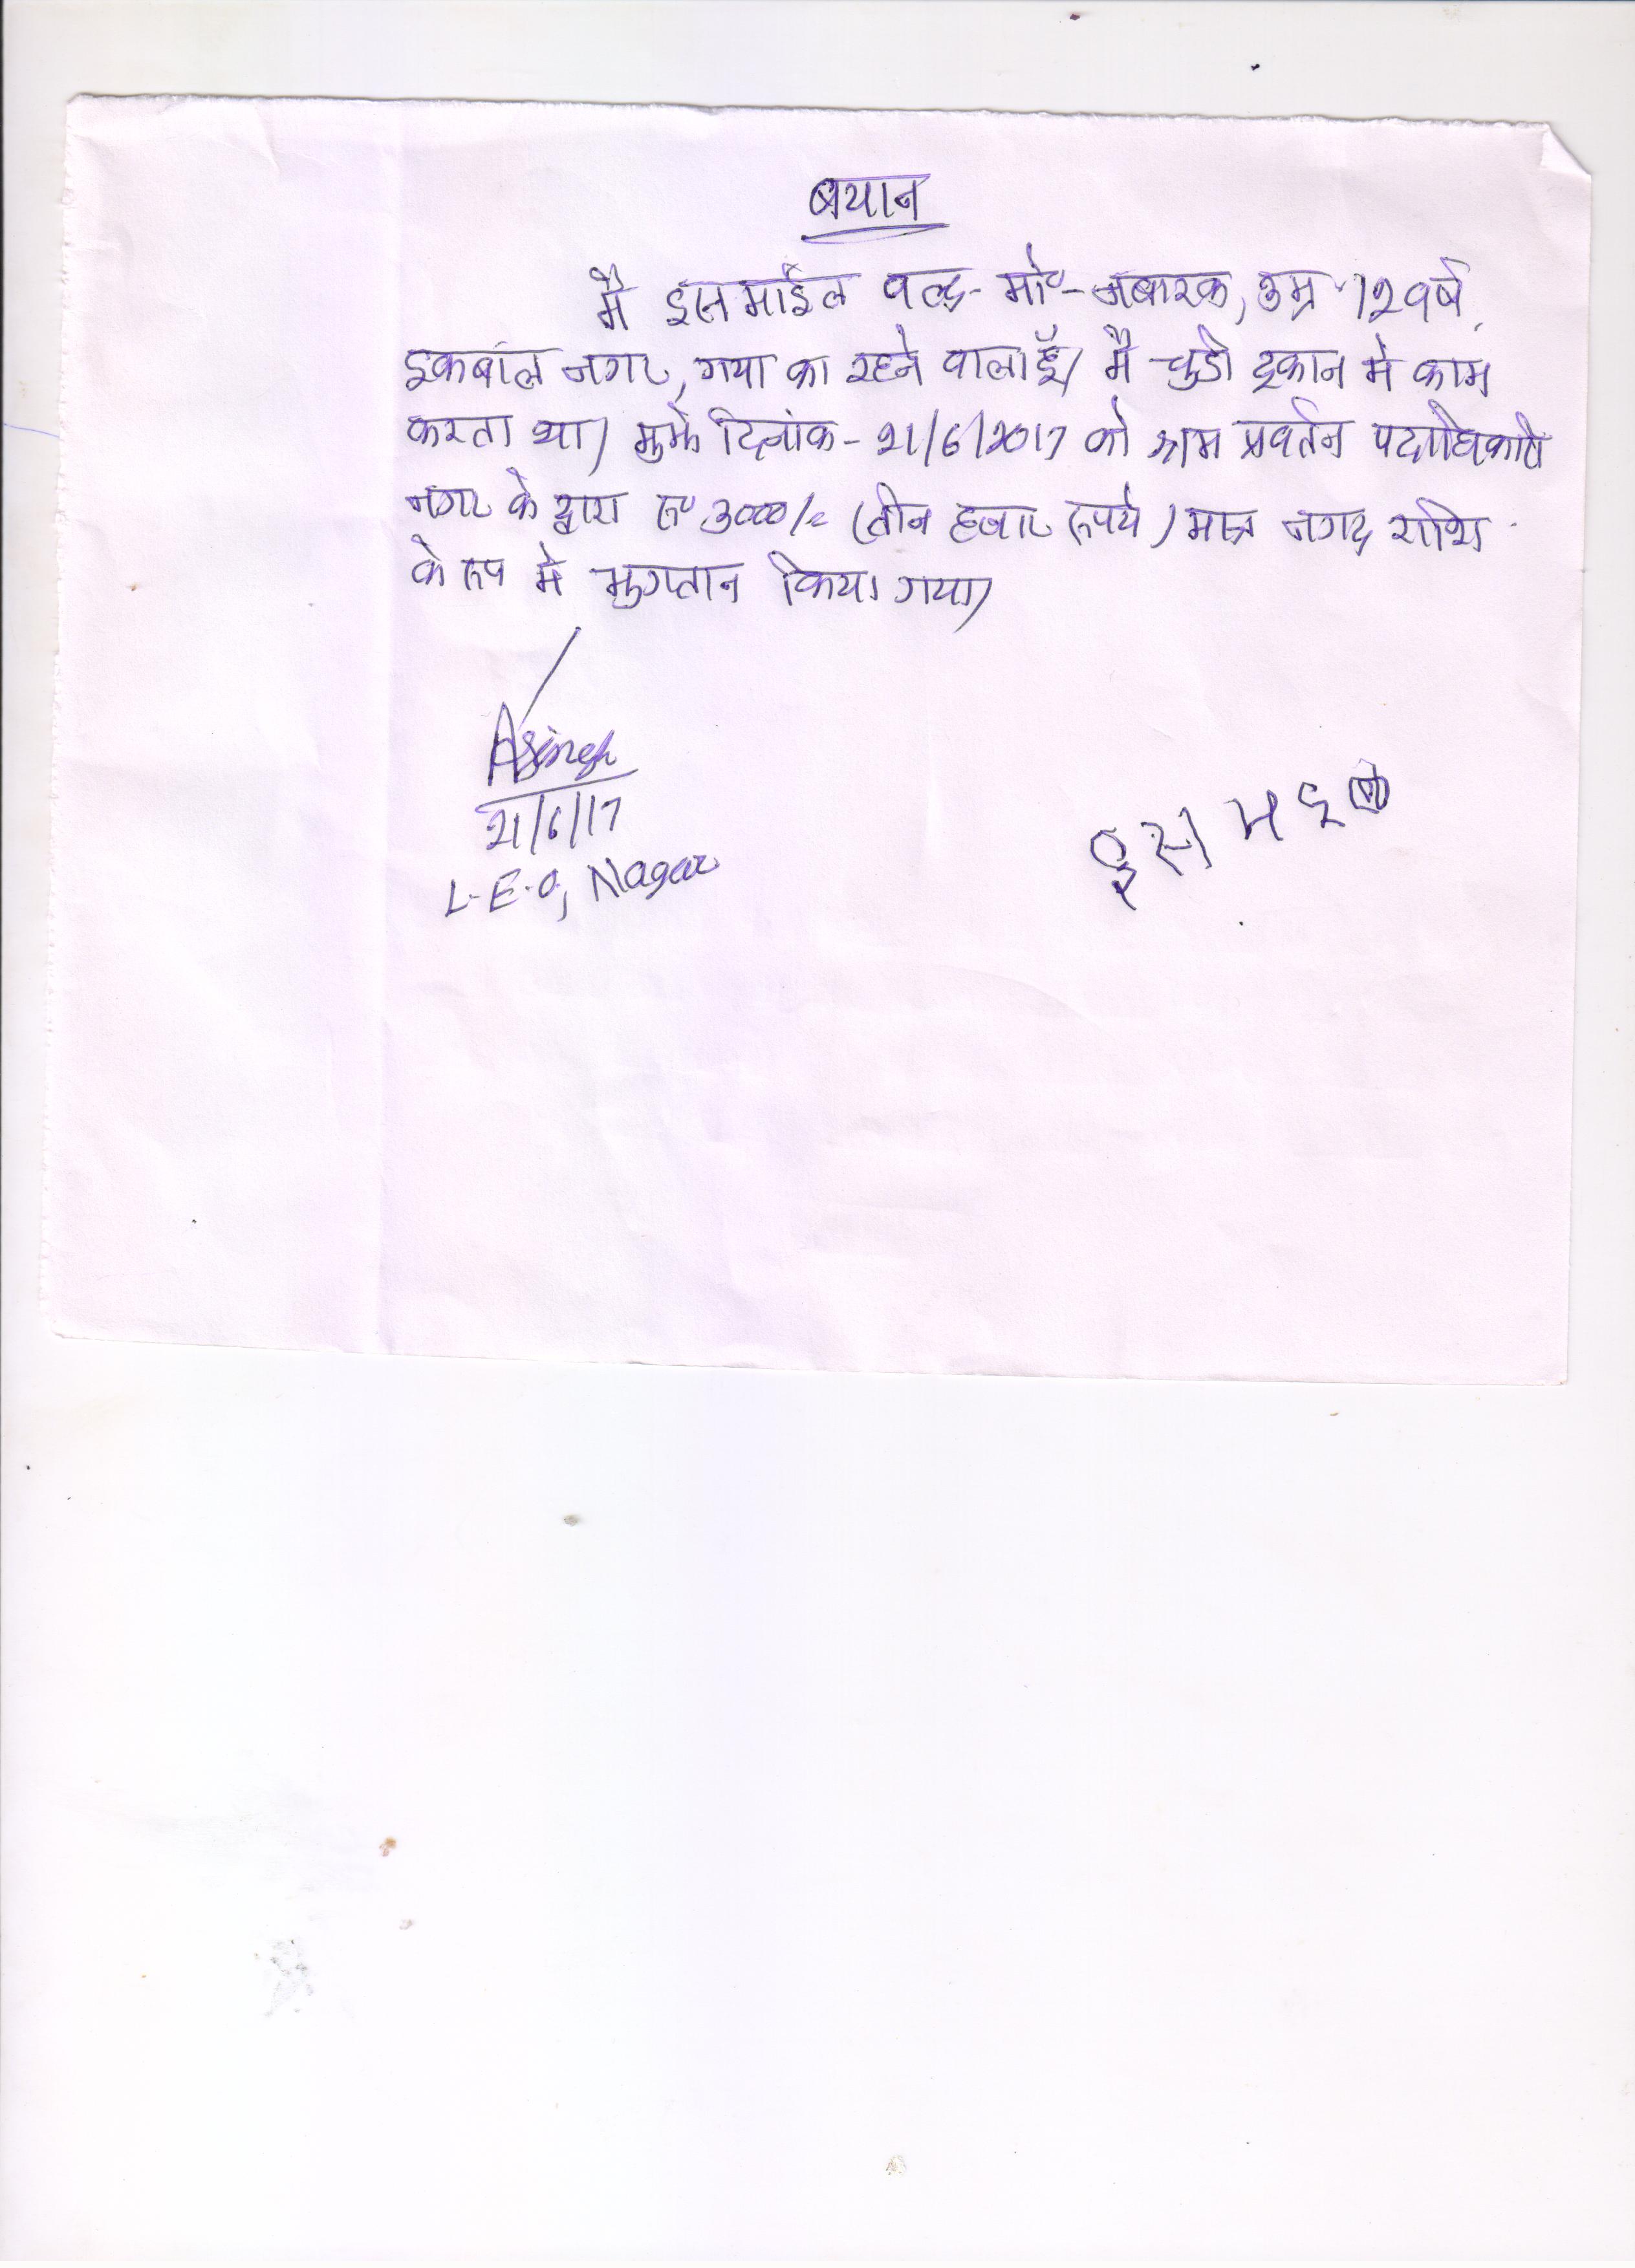 बयान
मै इसमाईल वल्द- मो०- मबारक, उम्र 12 वर्ष,
इकबाल नगर, गया का रहने वाला हूँ। मै चुडी दुकान मे काम
करता था। मुझे दिनांक- 21/6/2017 को श्रम प्रवर्तन पदाधिकारी
नगर के द्वारा रू० 3000/= (तीन हजार रूपये) मात्र नगद राशि
के रूप मे भुगतान किया गया।
Asingh
21/6/17
L.E.O, Nagar
इसमइल